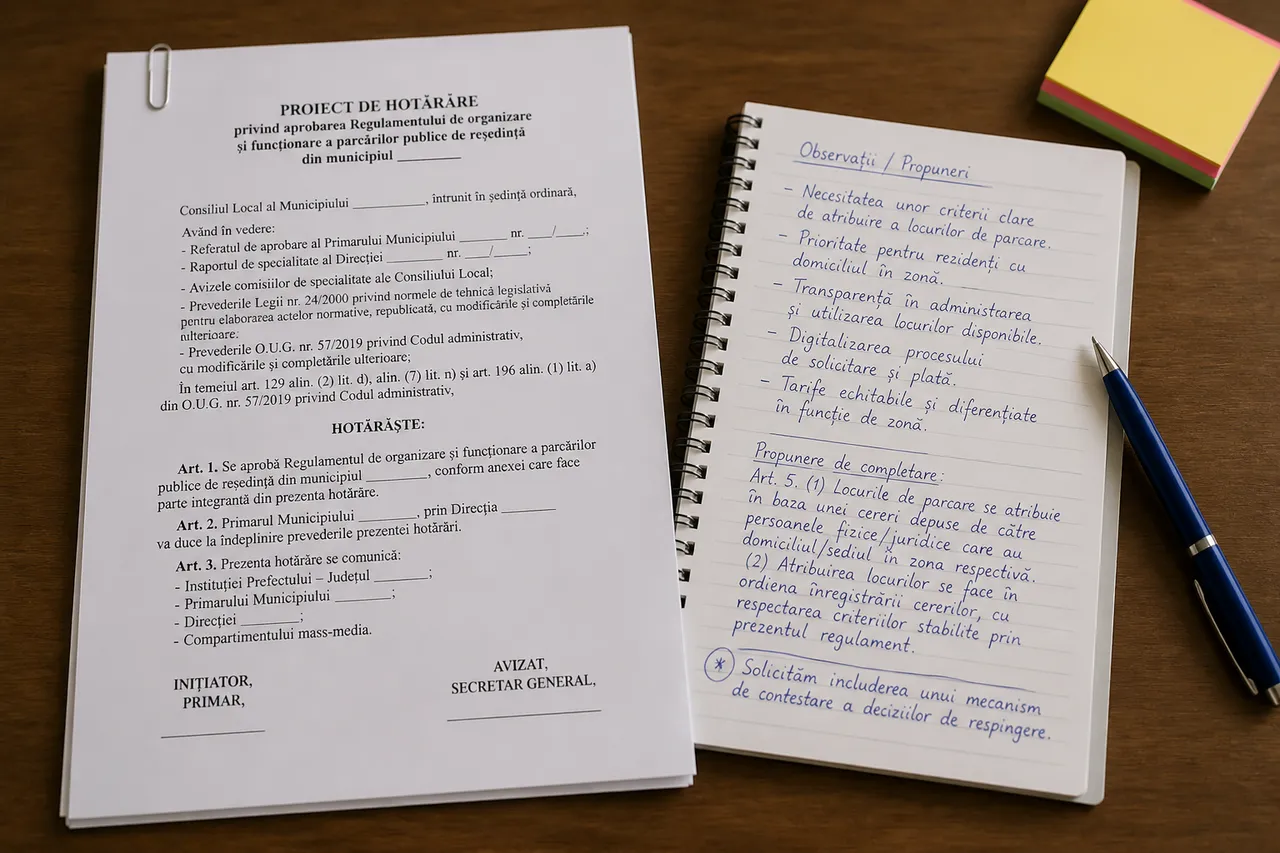 PROIECT DE HOTĂRÂRE
privind aprobarea Regulamentului de organizare
și funcționare a parcărilor publice de reședință
din municipiul _________
Consiliul Local al Municipiului __________, întrunit în ședință ordinară,
Având în vedere:
- Referatul de aprobare al Primarului Municipiului _______ nr. ___/____.;
- Raportul de specialitate al Direcției ________ nr. ___/____;
- Avizele comisiilor de specialitate ale Consiliului Local;
- Prevederile Legii nr. 24/2000 privind normele de tehnică legislativă
pentru elaborarea actelor normative, republicată, cu modificările și completările
ulterioare:
- Prevederile O.U.G. nr. 57/2019 privind Codul administrativ,
cu modificările și completările ulterioare;
În temeiul art. 129 alin. (2) lit. d), alin. (7) lit. n) și art. 196 alin. (1) lit. a)
din O.U.G. nr. 57/2019 privind Codul administrativ,
HOTĂRĂȘTE:
Art. 1. Se aprobă Regulamentul de organizare și funcționare a parcărilor
publice de reședință din municipiul _________, conform anexei care face
parte integrantă din prezenta hotărâre.
Art. 2. Primarul Municipiului ________, prin Direcția ________
va duce la îndeplinire prevederile prezentei hotărâri.
Art. 3. Prezenta hotărâre se comunică:
- Instituției Prefectului – Județul _______;
- Primarului Municipiului ________;
- Direcției ________;
- Compartimentului mass-media.
INIȚIATOR,
PRIMAR,
AVIZAT,
SECRETAR GENERAL,
Observații / Propuneri
- Necesitatea unor criterii clare
de atribuire a locurilor de parcare.
- Prioritate pentru rezidenți cu
domiciliul în zonă.
- Transparență în administrarea
și utilizarea locurilor disponibile.
- Digitalizarea procesului
de solicitare și plată.
- Tarife echitabile și diferențiate
în funcție de zonă.
Propunere de completare:
Art. 5. (1) Locurile de parcare se atribuie
în baza unei cereri depuse de către
persoanele fizice/juridice care au
domiciliul/sediul în zona respectivă.
(2) Atribuirea locurilor se face în
ordiena înregistrării cererilor, cu
respectarea criteriilor stabilite prin
prezentul regulament.
* Solicităm includerea unui mecanism
de contestare a deciziilor de respingere.